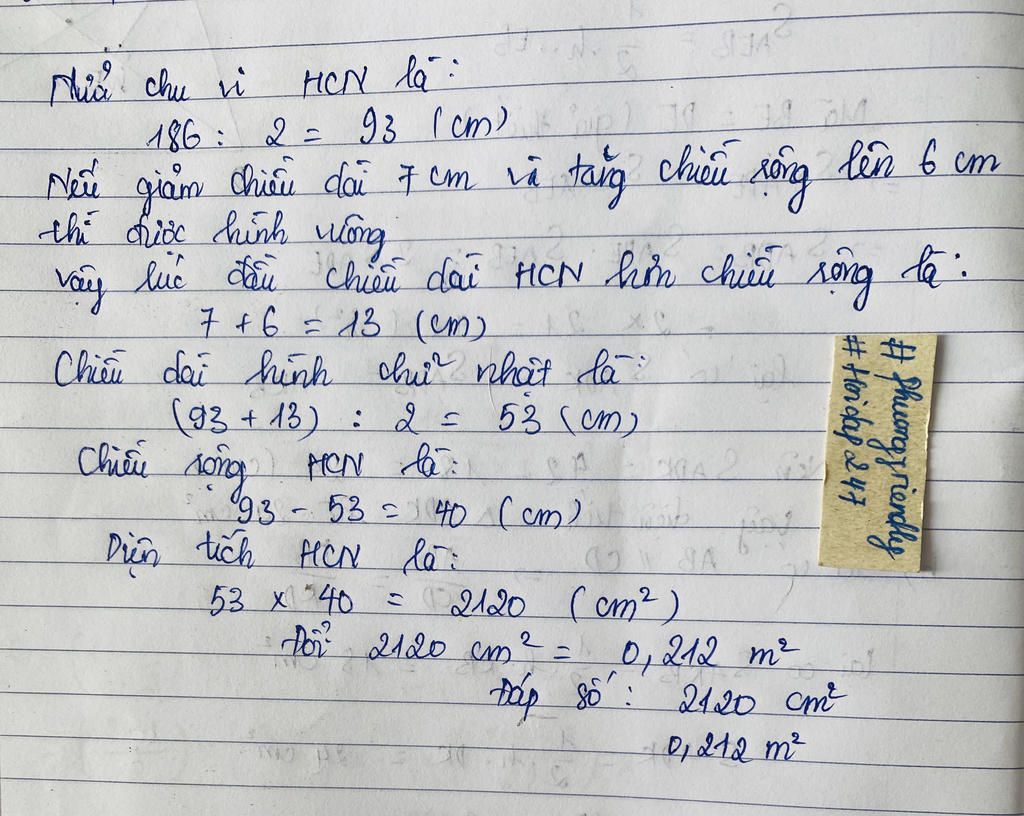 Nửa chu vi HCN là:
186 : 2 = 93 (cm)
Nếu giảm chiều dài 7 cm và tăng chiều rộng lên 6 cm
thì được hình vuông
vậy lúc đầu chiều dài HCN hơn chiều rộng là:
7 + 6 = 13 (cm)
Chiều dài hình chữ nhật là:
(93 + 13) : 2 = 53 (cm)
Chiều rộng HCN là:
93 - 53 = 40 (cm)
Diện tích HCN là:
53 x 40 = 2120 (cm²)
Đổi 2120 cm² = 0,212 m²
Đáp số: 2120 cm²
0,212 m²
# phuongfriendly
# Hoidap247